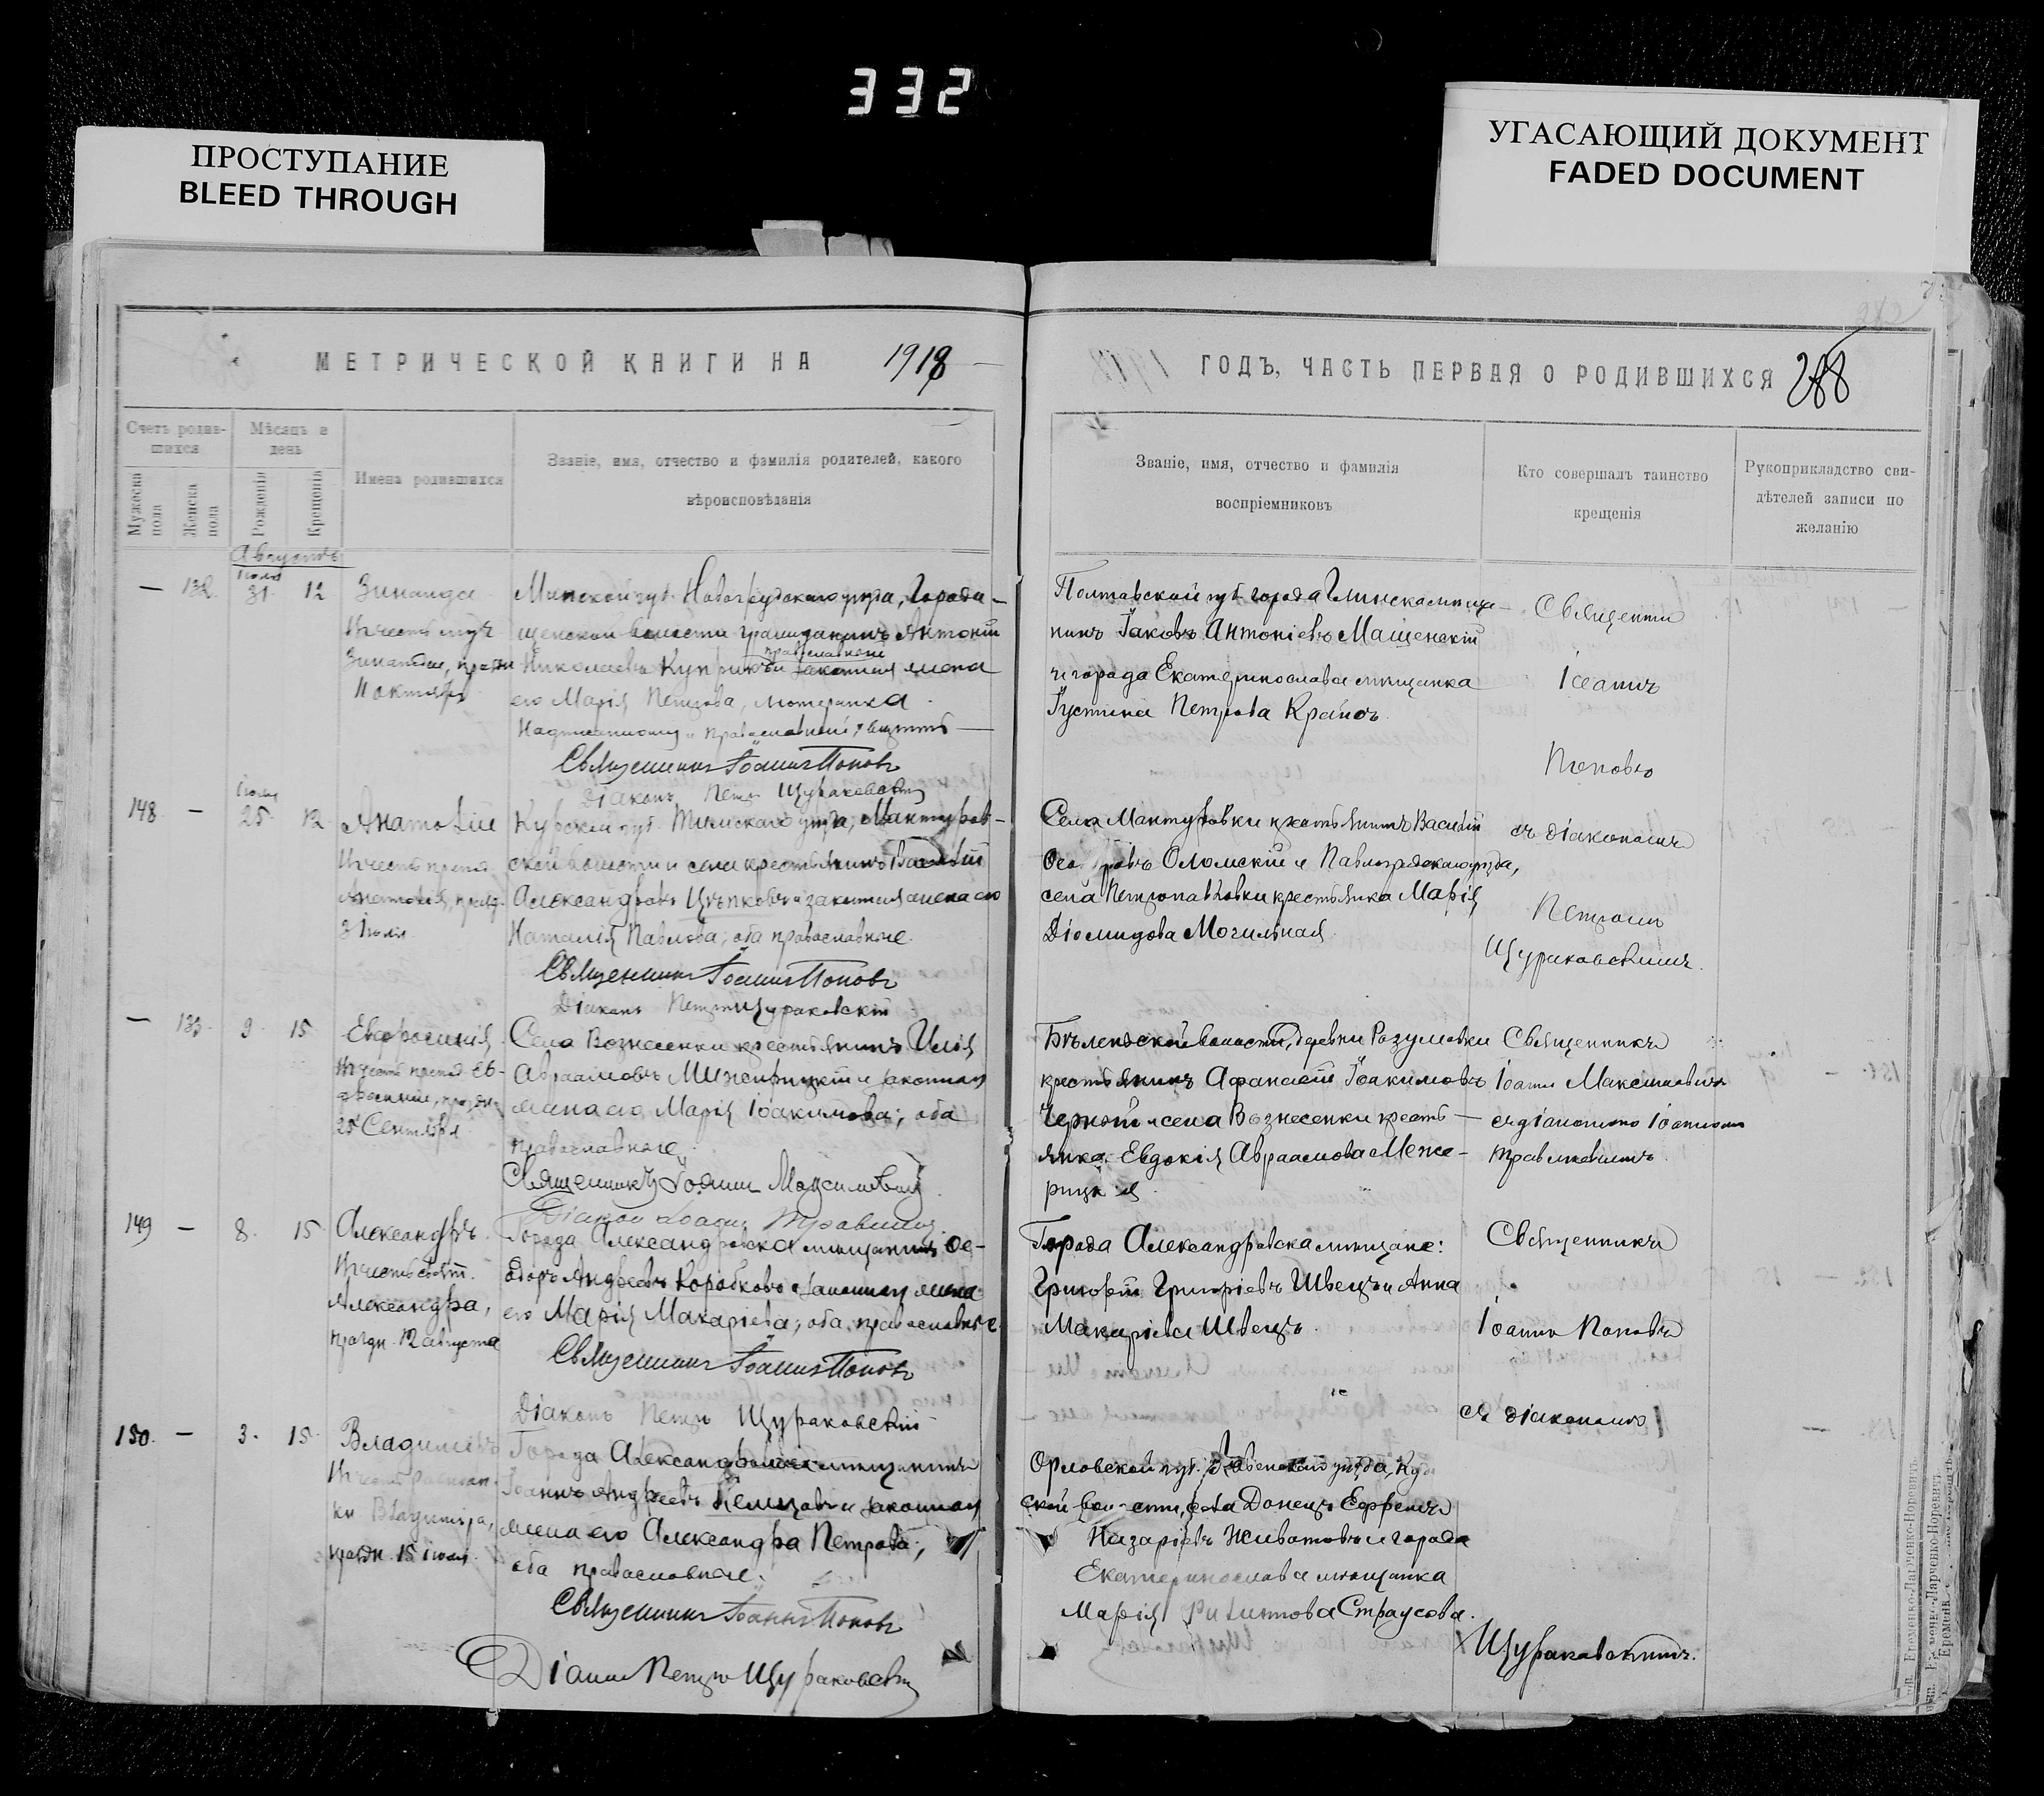 332
ПРОСТУПАНИЕ
BLEED THROUGH
УГАСАЮЩИЙ ДОКУМЕНТ
FADED DOCUMENT
МЕТРИЧЕСКОЙ КНИГИ НА 1918
Счетъ родившихся
Мѣсяцъ и день
Имена родившихся
Званіе, имя, отчество и фамилія родителей, какого
вѣроисповѣданія
Мужеска пола
Женска пола
Рожденія
Крещенія
Августъ
— 132. Іюля 31. 12
Зинаида
Въ честь муч
Зинаиды, праздн
11 октября
Минской губ. Новогрудскаго уѣзда, Городи-
щенской волости гражданинъ Антоній
православный
Николаевъ и законная жена
его Марія Петрова,
Священникъ Іоаннъ Поповъ
Діаконъ Петръ Щураковскій
148. — Іюля 25. 12
Анатолій
Въ честь препод.
Анатолія, праздн.
3 Іюля
Курской губ. Тимскаго уѣзда, Мантуров-
ской волости и села крестьянинъ Василій
Александровъ Цѣпковъ и законная жена его
Наталія Павлова; оба православные.
Священникъ Іоаннъ Поповъ
Діаконъ Петръ Щураковскій
— 133. 9. 15
Евфросинія
Въ честь препод. Ев-
фросиніи, праздн.
25 Сентября
Села Вознесенки крестьянинъ Илія
Авраамовъ Межирицкій и законная
жена его Марія Іоакимова; оба
православные.
Священникъ Іоаннъ Максимовичъ
Діаконъ Іоаннъ
149 — 8. 15.
Александръ
Въ честь свят.
Александра,
праздн. 12 августа
Города Александровска мѣщанинъ Ѳе-
одоръ Андреевъ Коробковъ и законная жена
его Марія Макаріева; оба православные
Священникъ Іоаннъ Поповъ
Діаконъ Петръ Щураковскій
150. — 3. 15.
Владиміръ
Въ честь равноап.
кн Владиміра,
праздн. 15 іюля.
Города Александровска мѣщанинъ
Іоаннъ Андреевъ и законная
жена его Александра Петрова;
оба православные.
Священникъ Іоаннъ Поповъ
Діаконъ Петръ Щураковскій
ГОДЪ, ЧАСТЬ ПЕРВАЯ О РОДИВШИХСЯ 288
Званіе, имя, отчество и фамилія
воспріемниковъ
Кто совершалъ таинство
крещенія
Рукоприкладство сви-
дѣтелей записи по
желанію
Полтавской губ. города Глинска мѣща-
нинъ Іаковъ Антоніевъ Мащенскій
и города Екатеринослава мѣщанка
Іустина Петрова Крайсъ.
Священни
Іоаннъ
Поповъ
Села Мантуровки крестьянинъ Василій
Оломскій и Павлоградскаго уѣзда,
села Петропавловки крестьянка Марія
Діомидова Могильная.
съ діакономъ
Петромъ
Щураковскимъ.
Бѣленьской волости, деревни Разумовки
крестьянинъ Афанасій Іоакимовъ
Черный и села Вознесенки кресть-
янка Евдокія Авраамова Меже-
рицкая.
Священникъ
Іоаннъ Максимовичъ
съ діакономъ Іоанномъ
Города Александровска мѣщане:
Григорій Григоріевъ Швецъ и Анна
Макаріева Швецъ.
Священникъ
Іоаннъ Поповъ
съ діакономъ
Орловской губ. Ливенскаго уѣзда,
ской волости, села Донецъ Ефремъ
Назаріевъ Животовъ и города
Екатеринослава мѣщанка
Марія Филиппова Страусова.
Щураковскимъ.